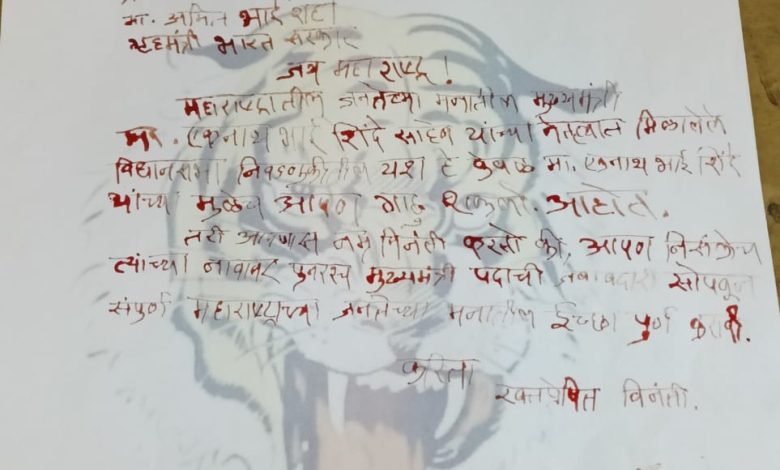 मा. अमित भाई शहा
गृहमंत्री भारत सरकार
जय महाराष्ट्र !
महाराष्ट्रातील जनतेच्या मनातील मुख्यमंत्री
मा. एकनाथ भाई शिंदे साहेब यांच्या नेतृत्वात मिळालेले
विधानसभा निवडणुकीतील यश हे केवळ मा. एकनाथ भाई शिंदे
यांच्या मुळेच आपण गाठु शकलो. आहोत.
तरी आपणास नम्र विनंती करतो की, आपण निसंकोच
त्यांच्या नावावर पुनश्च मुख्यमंत्री पदाची जबाबदारी सोपवून
संपुर्ण महाराष्ट्राच्या जनतेच्या मनातील ईच्छा पुर्ण करावी.
करिता
विनंती.